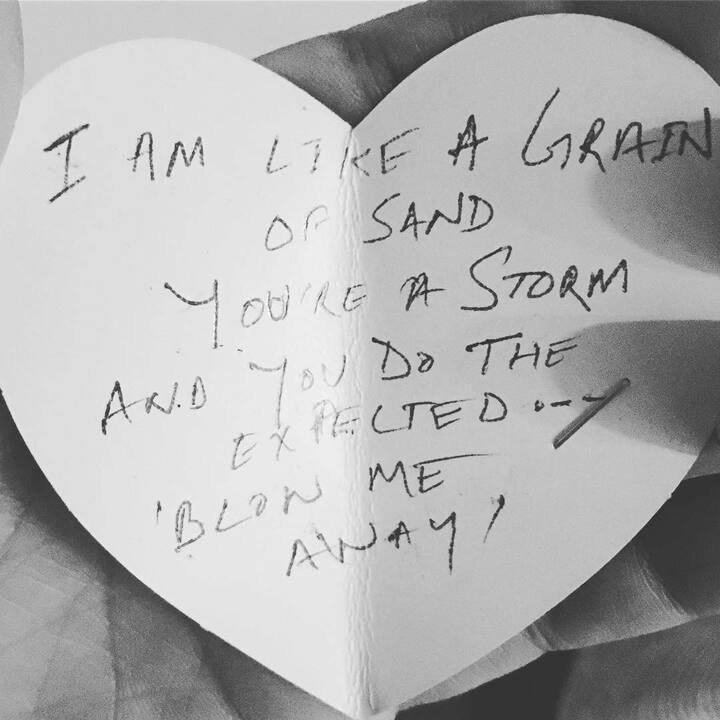 I AM LIKE A GRAIN
OF SAND
YOU'RE A STORM
AND YOU DO THE
EXPECTED ---
'BLOW ME
AWAY'